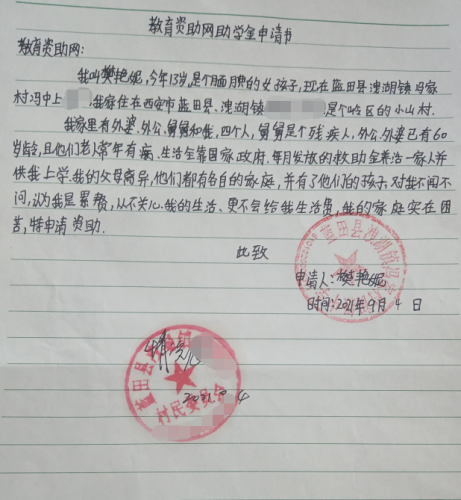 教育资助网助学金申请书
教育资助网:
我叫樊艳妮,今年13岁,是个腼腆的女孩子,现在蓝田县洩湖镇冯家
村冯中上 我家住在西安市蓝田县、洩湖镇 是个岭区的小山村.
我家里有外婆、外公、舅舅和我,四个人,舅舅是个残疾人,外公、外婆已有60
岁龄,且他们老人常年有病、生活全靠国家政府、每月发放的救助金养活一家人并
供我上学我的父母离异,他们都有各自的家庭,并有了他们的孩子,对我不闻不
问,认为我是累赘,从不关心我的生活、更不会给我生活费,我的家庭实在困
苦,特申请资助.
此致
申请人:樊艳妮
时间:2021年9月4日
蓝田县洩湖镇冯家
蓝田县 镇
村民委员会